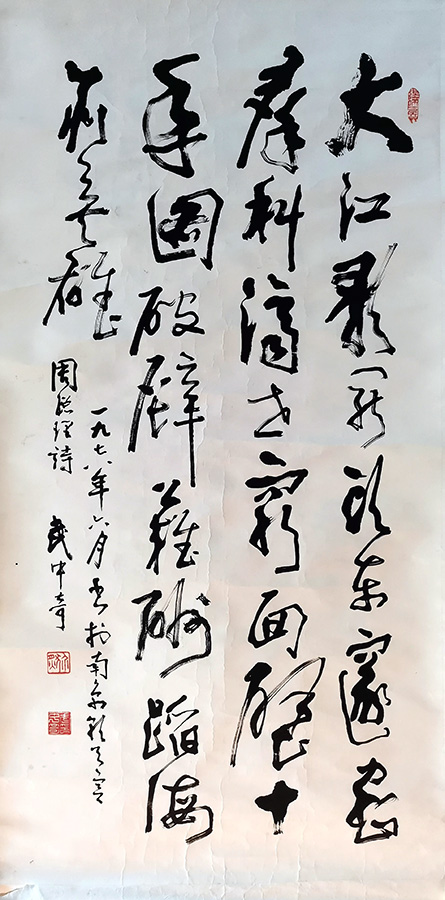 大江歌罷頭東邃密
羣科濟世窮面壁十
年圖破壁難酬蹈海
亦英雄
周總理詩
一九七八年六月書於南京
武中奇